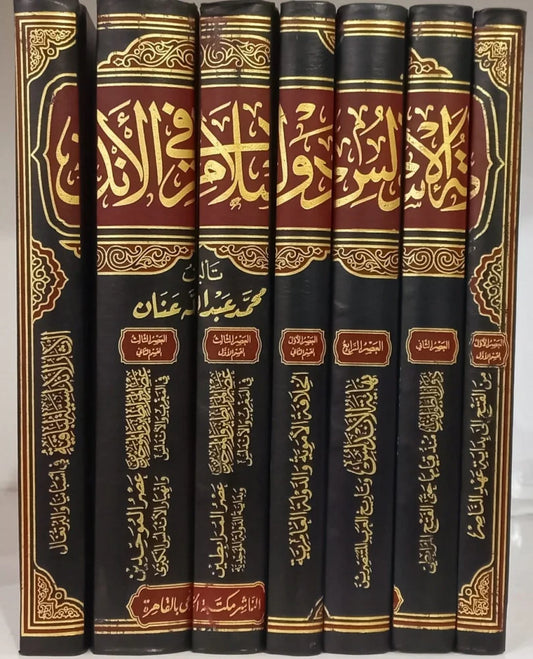 ـة الإسـ ـلس دولـ ـسلام في الأند
تأليف
محمد عبد الله عنان
العصر الأول
القسم الأول
من الفتح إلى بداية عهد الناصر
العصر الثاني
دول الطوائف
منذ قيامها حتى الفتح المرابطي
العصر الرابع
نهاية الأندلس
وتاريخ العرب المتنصرين
العصر الأول
القسم الثاني
الخلافة الأموية والدولة العامرية
العصر الثالث
القسم الأول
عصر المرابطين والموحدين
في المغرب والأندلس
عصر المرابطين
وبداية الدولة الموحدية
العصر الثالث
القسم الثاني
عصر المرابطين والموحدين
في المغرب والأندلس
عصر الموحدين
وانهيار الأندلس الكبرى
الآثار الأندلسية الباقية
في إسبانيا والبرتغال
الناشر مكتبة الخانجي بالقاهرة